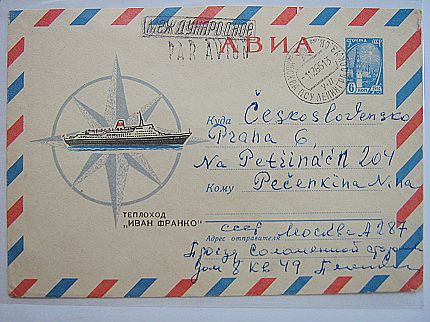 МЕЖДУНАРОДНОЕ
PAR AVION
АВИА
ПОЧТА СССР
6
коп
Куда Československo
Praha 6,
Na Petřinách 204
Кому Pečenkina Nina
ТЕПЛОХОД
„ИВАН ФРАНКО"
СССР Москва А 287
Адрес отправителя
Проезд Соломенной сторожки
дом 8 кв 49